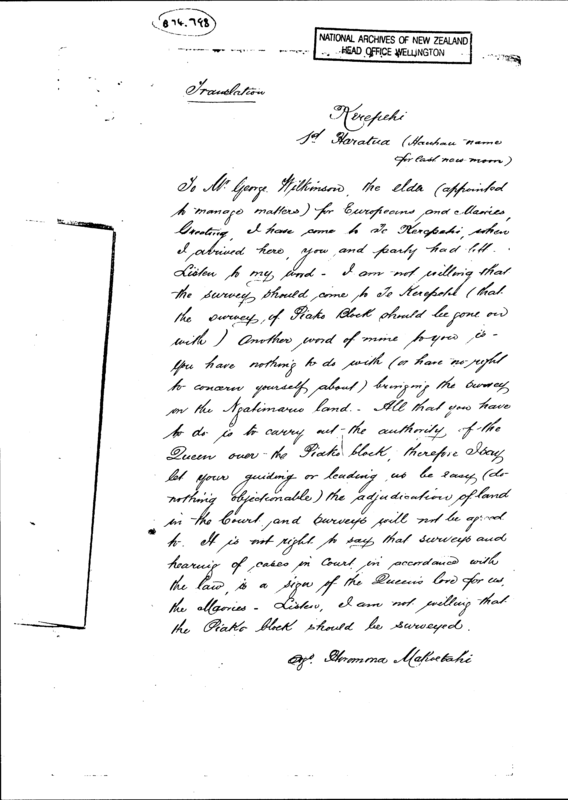 B 74.798
NATIONAL ARCHIVES OF NEW ZEALAND
HEAD OFFICE WELLINGTON
Translation
Kerepehi
1st Haratua (Hauhau name
for last new moon)
To Mr George Wilkinson, the elder (appointed
to manage matters) for Europeans and Maories,
Greeting, I have come to Te Kerepehi, when
I arrived here, you and party had left.
Listen to my word - I am not willing that
the survey should come to Te Kerepehi (that
the survey of Piako Block should be gone on
with) Another word of mine to you is -
You have nothing to do with (or have no right
to concern yourself about) bringing the survey
on the Ngatimaru land. - All that you have
to do is to carry out the authority of the
Queen over the Piako block, therefore I say
let your guiding or leading us be easy (do
nothing objectionable) the adjudication of land
in the Court, and surveys will not be agreed
to. It is not right to say that surveys and
hearing of cases in Court, in accordance with
the law, is a sign of the Queens love for us,
the Maories - Listen, I am not willing that
the Piako block should be surveyed.
Horomona